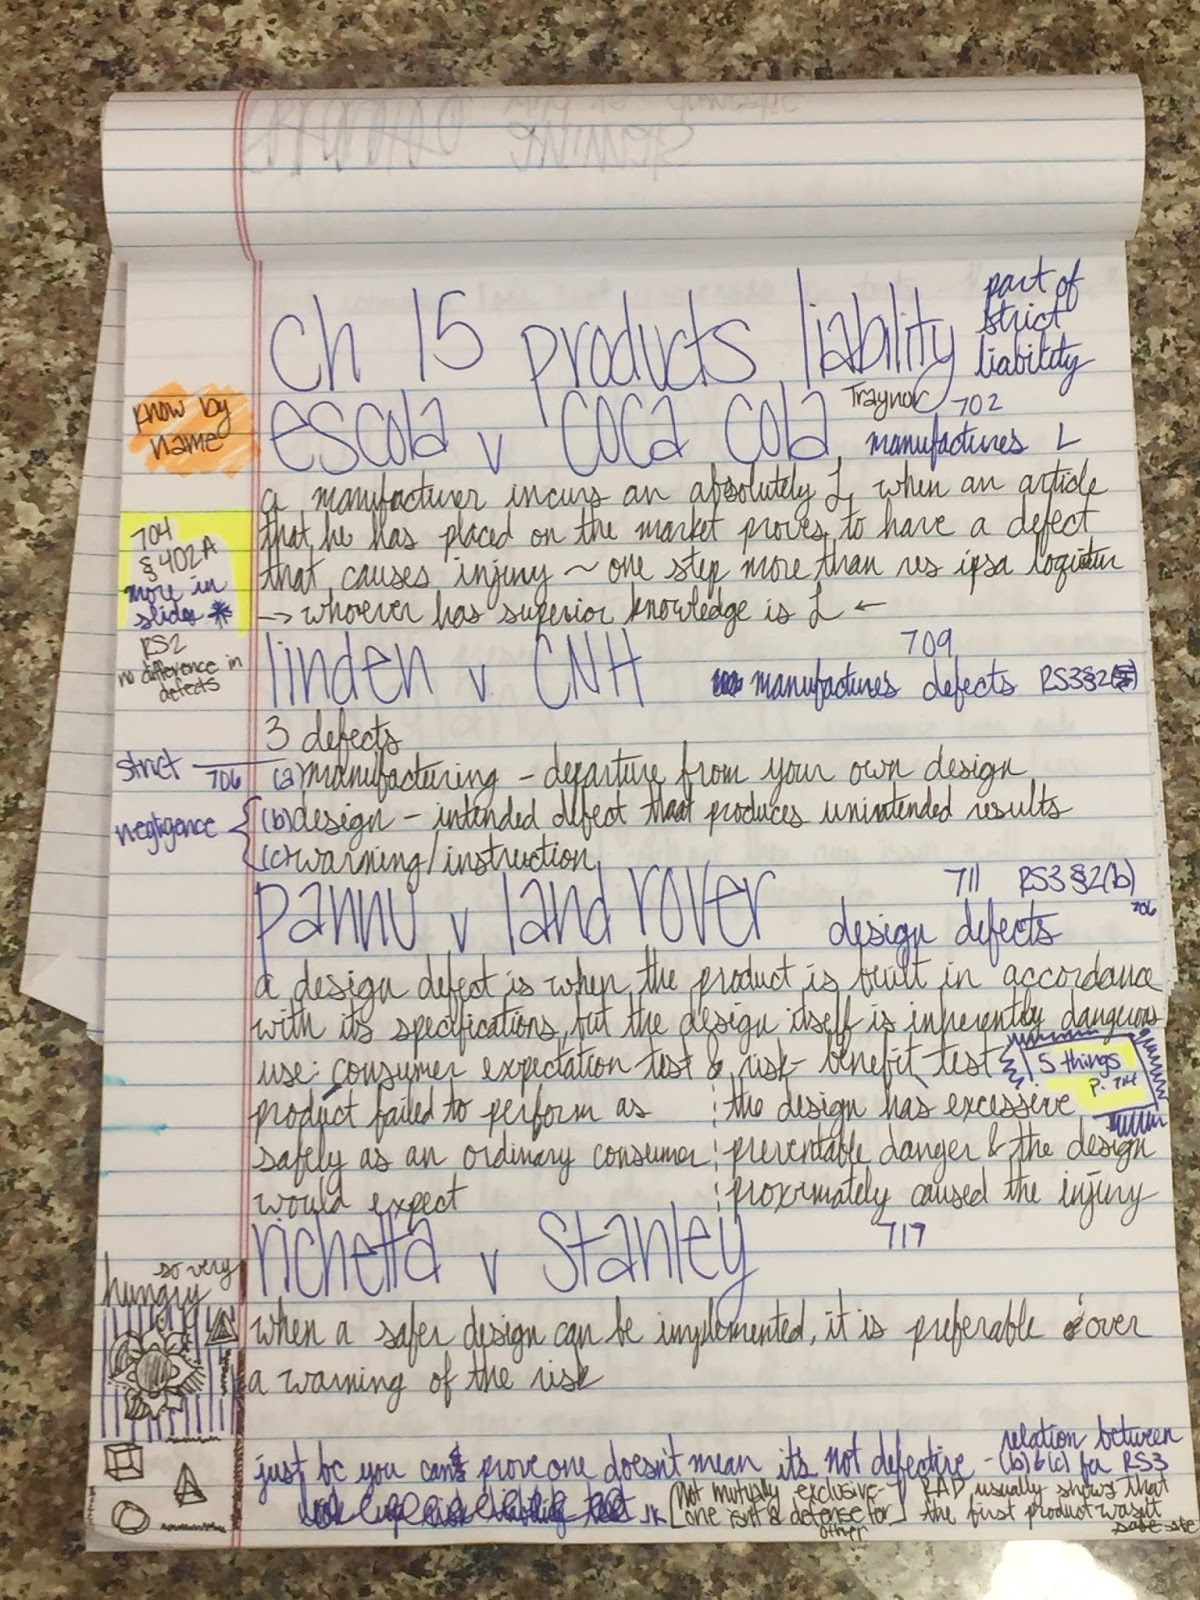 Ch 15 products liability part of
strict
liability
know by
name
escola v coca cola Traynor 702
manufactures L
a manufacturer incurs an absolutely L when an article
704
§402A
more in
slides *
that he has placed on the market proves to have a defect
that causes injury ~ one step more than res ipsa loquitur
→ whoever has superior knowledge is L ←
RS2
no difference in
defects
linden v. CNH 709
manufactures defects RS3§2
3 defects
strict 706 (a) manufacturing - departure from your own design
negligence { (b) design - intended defect that produces unintended results
(c) warning/instruction
pannu v land rover 711 RS3 §2(b)
706
design defects
a design defect is when the product is built in accordance
with its specifications, but the design itself is inherently dangerous
use: consumer expectation test & risk-benefit test
5 things
p. 714
product failed to perform as
safely as an ordinary consumer
would expect
the design has excessive
preventable danger & the design
proximately caused the injury
richetta v Stanley 717
so very
hungry
when a safer design can be implemented, it is preferable over
a warning of the risk
just bc you can't prove one doesn't mean it's not defective - relation between
(b)&(c) for RS3
jk [not mutually exclusive -
one isn't a defense for
other]
RAD usually shows that
the first product wasn't
safe